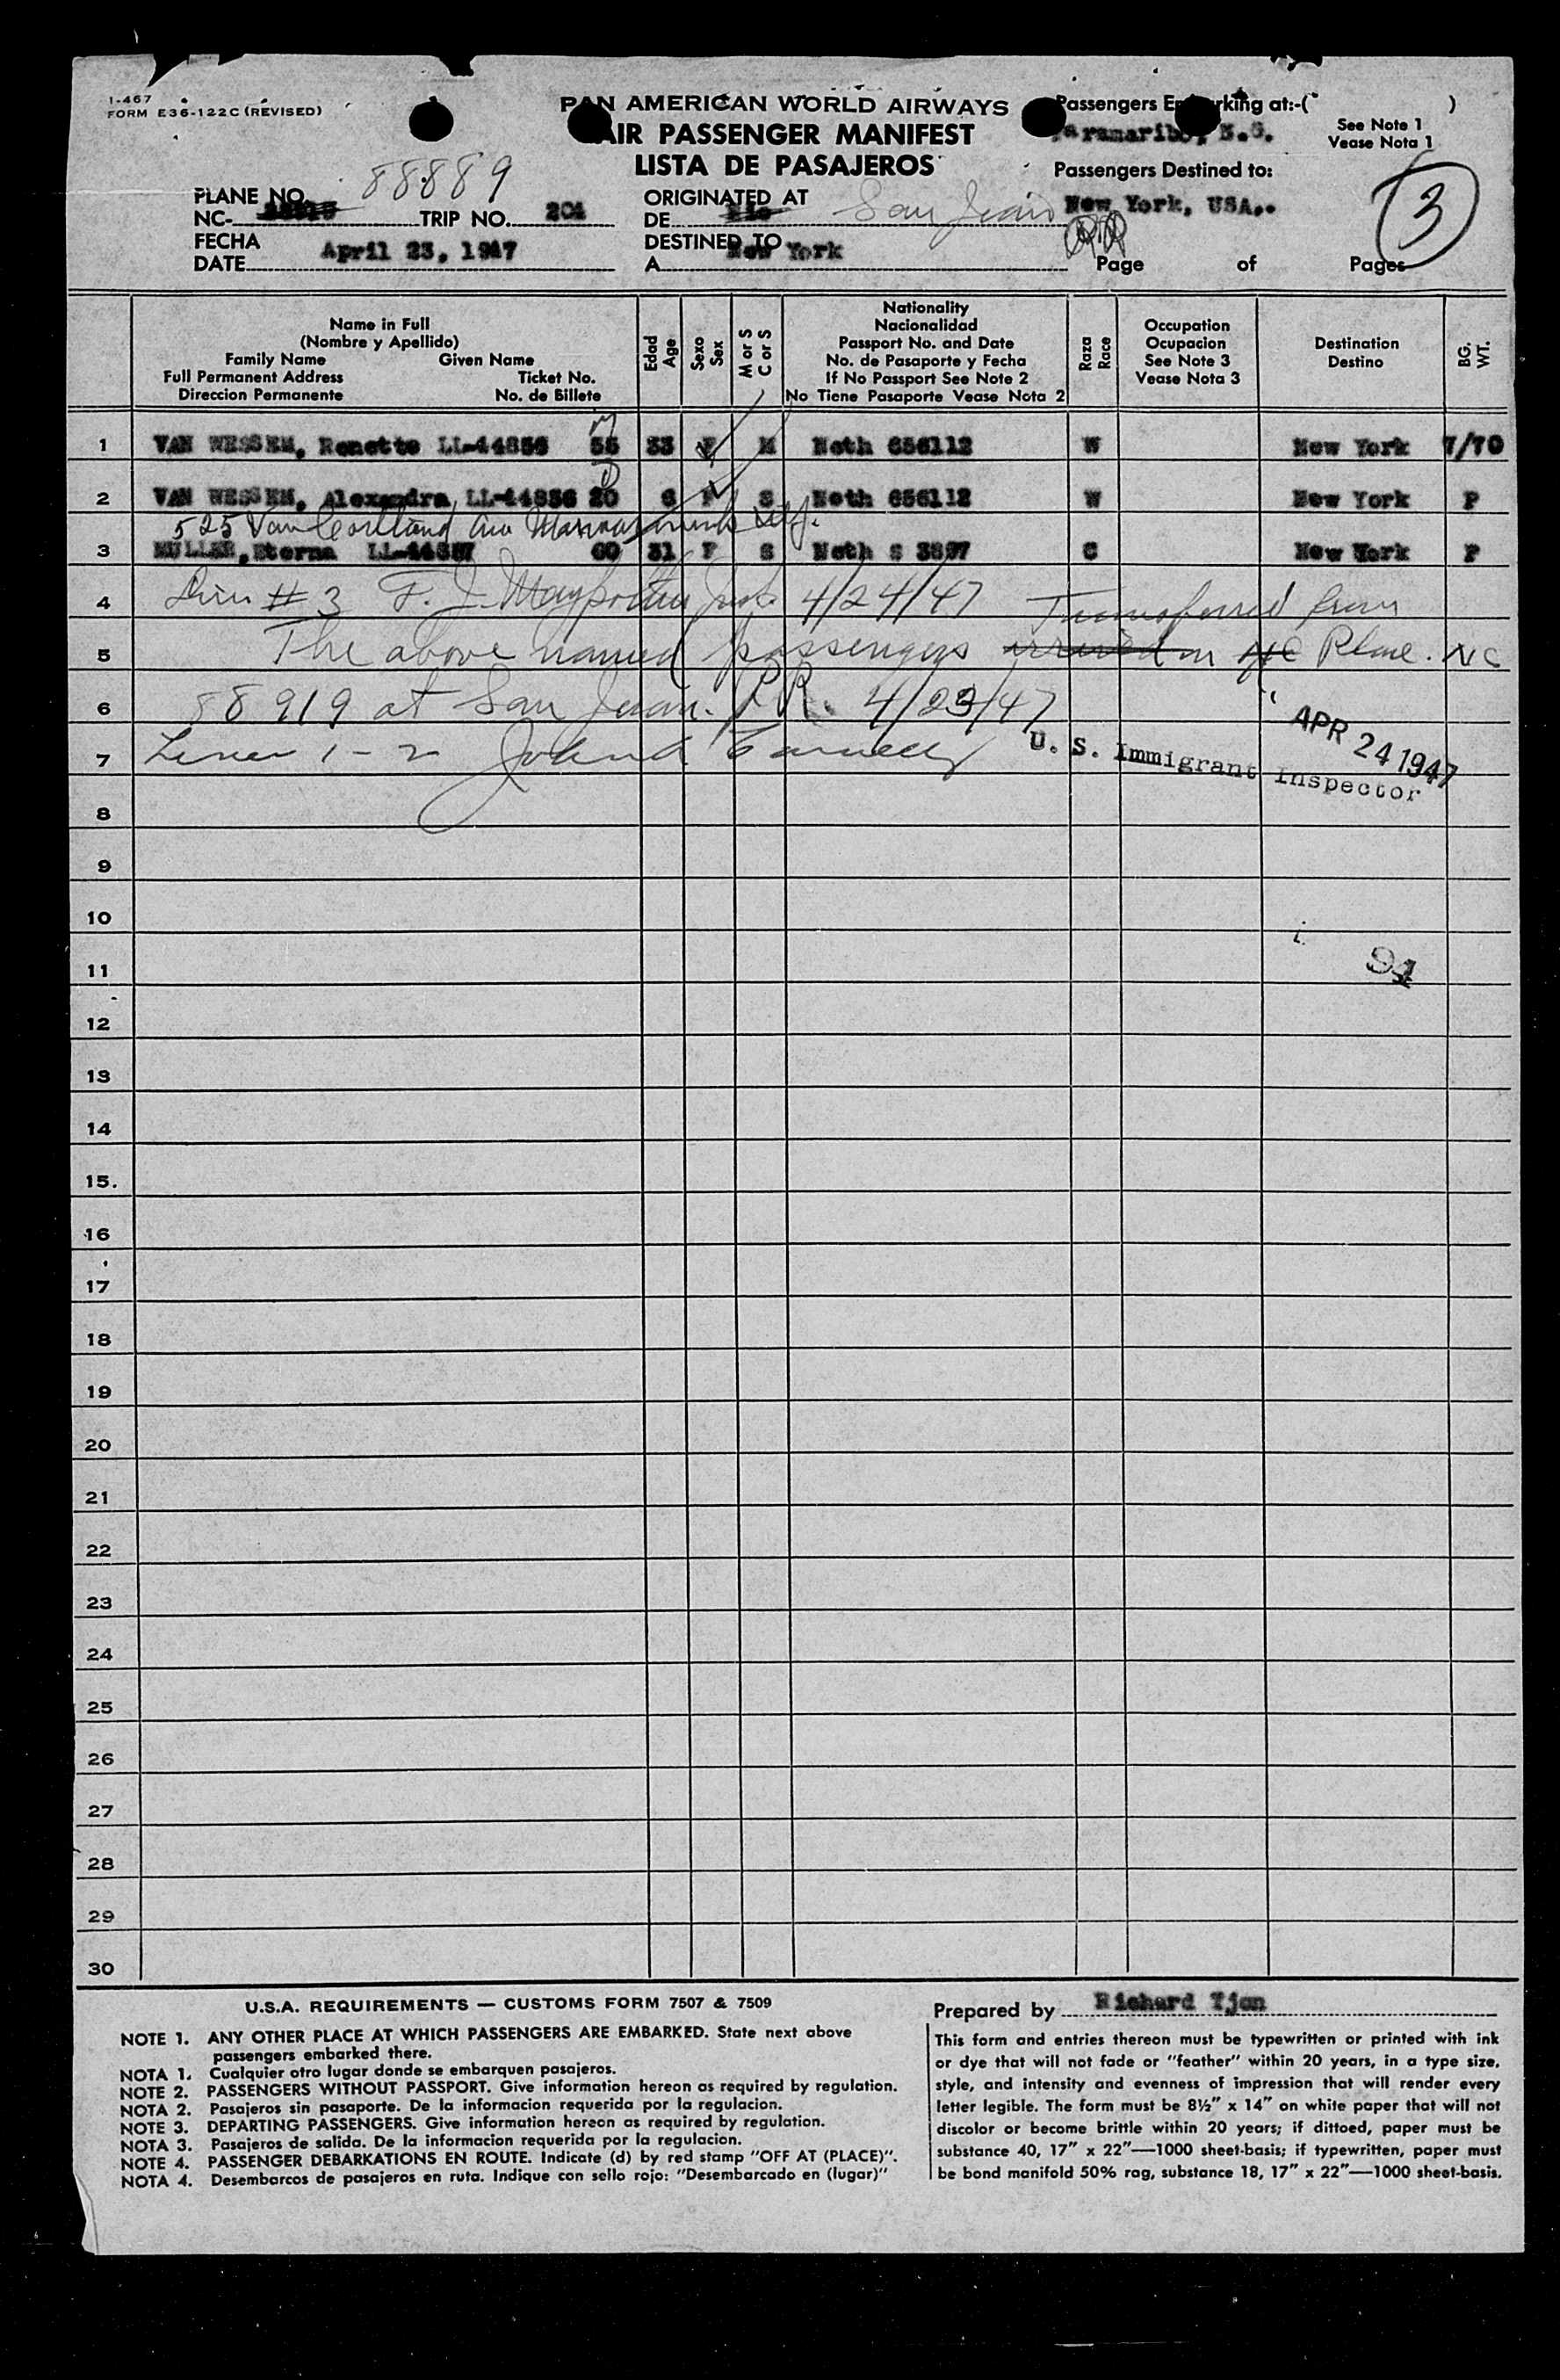 I-467
FORM E36-122C (REVISED)
PAN AMERICAN WORLD AIRWAYS
AIR PASSENGER MANIFEST
LISTA DE PASAJEROS
Passengers Embarking at:-( )
Paramaribo, N.G.
See Note 1
Vease Nota 1
Passengers Destined to:
New York, USA..
3
88889
PLANE NO.
NC- TRIP NO. 204
ORIGINATED AT
DE Rio San Juan
PR
FECHA
DATE April 23, 1947
DESTINED TO
A New York
Page of Pages
Name in Full
(Nombre y Apellido)
Family Name Given Name
Full Permanent Address Ticket No.
Direccion Permanente No. de Billete
Edad
Age
Sexo
Sex
M or S
C or S
Nationality
Nacionalidad
Passport No. and Date
No. de Pasaporte y Fecha
If No Passport See Note 2
No Tiene Pasaporte Vease Nota 2
Raza
Race
Occupation
Ocupacion
See Note 3
Vease Nota 3
Destination
Destino
BG.
WT.
1 VAN WESSEM, Renette LL-44856 55 33 F M Neth 656112 W New York 7/70
2 VAN WESSEM, Alexandra LL-44856 20 6 F S Neth 656112 W New York P
525 Van Cortland Ave
3 MULLER, Eterna 60 31 F S Neth S 3897 C New York P
4 # 3 F. J. 4/24/47 Transferred from
5 The above named passengers arrived on NC Plane. NC
6 88919 at San Juan. P.R. 4/23/47
7 Lines 1-2 John
U. S. Immigrant Inspector
APR 24 1947
8
9
10
11
94
12
13
14
15.
16
17
18
19
20
21
22
23
24
25
26
27
28
29
30
U.S.A. REQUIREMENTS — CUSTOMS FORM 7507 & 7509
NOTE 1. ANY OTHER PLACE AT WHICH PASSENGERS ARE EMBARKED. State next above
passengers embarked there.
NOTA 1. Cualquier otro lugar donde se embarquen pasajeros.
NOTE 2. PASSENGERS WITHOUT PASSPORT. Give information hereon as required by regulation.
NOTA 2. Pasajeros sin pasaporte. De la informacion requerida por la regulacion.
NOTE 3. DEPARTING PASSENGERS. Give information hereon as required by regulation.
NOTA 3. Pasajeros de salida. De la informacion requerida por la regulacion.
NOTE 4. PASSENGER DEBARKATIONS EN ROUTE. Indicate (d) by red stamp "OFF AT (PLACE)".
NOTA 4. Desembarcos de pasajeros en ruta. Indique con sello rojo: "Desembarcado en (lugar)"
Prepared by Richard Tjon
This form and entries thereon must be typewritten or printed with ink
or dye that will not fade or "feather" within 20 years, in a type size,
style, and intensity and evenness of impression that will render every
letter legible. The form must be 8½" x 14" on white paper that will not
discolor or become brittle within 20 years; if dittoed, paper must be
substance 40, 17" x 22"—1000 sheet-basis; if typewritten, paper must
be bond manifold 50% rag, substance 18, 17" x 22"—1000 sheet-basis.